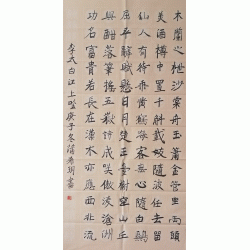 木蘭之枻沙棠舟玉簫金管坐兩頭
美酒樽中置千斛載妓隨波任去留
仙人有待乘黃鶴海客無心隨白鷗
屈平辭賦懸日月楚王臺榭空山丘
興酣落筆搖五嶽詩成笑傲凌滄洲
功名富貴若長在漢水亦應西北流
李太白江上吟庚子冬